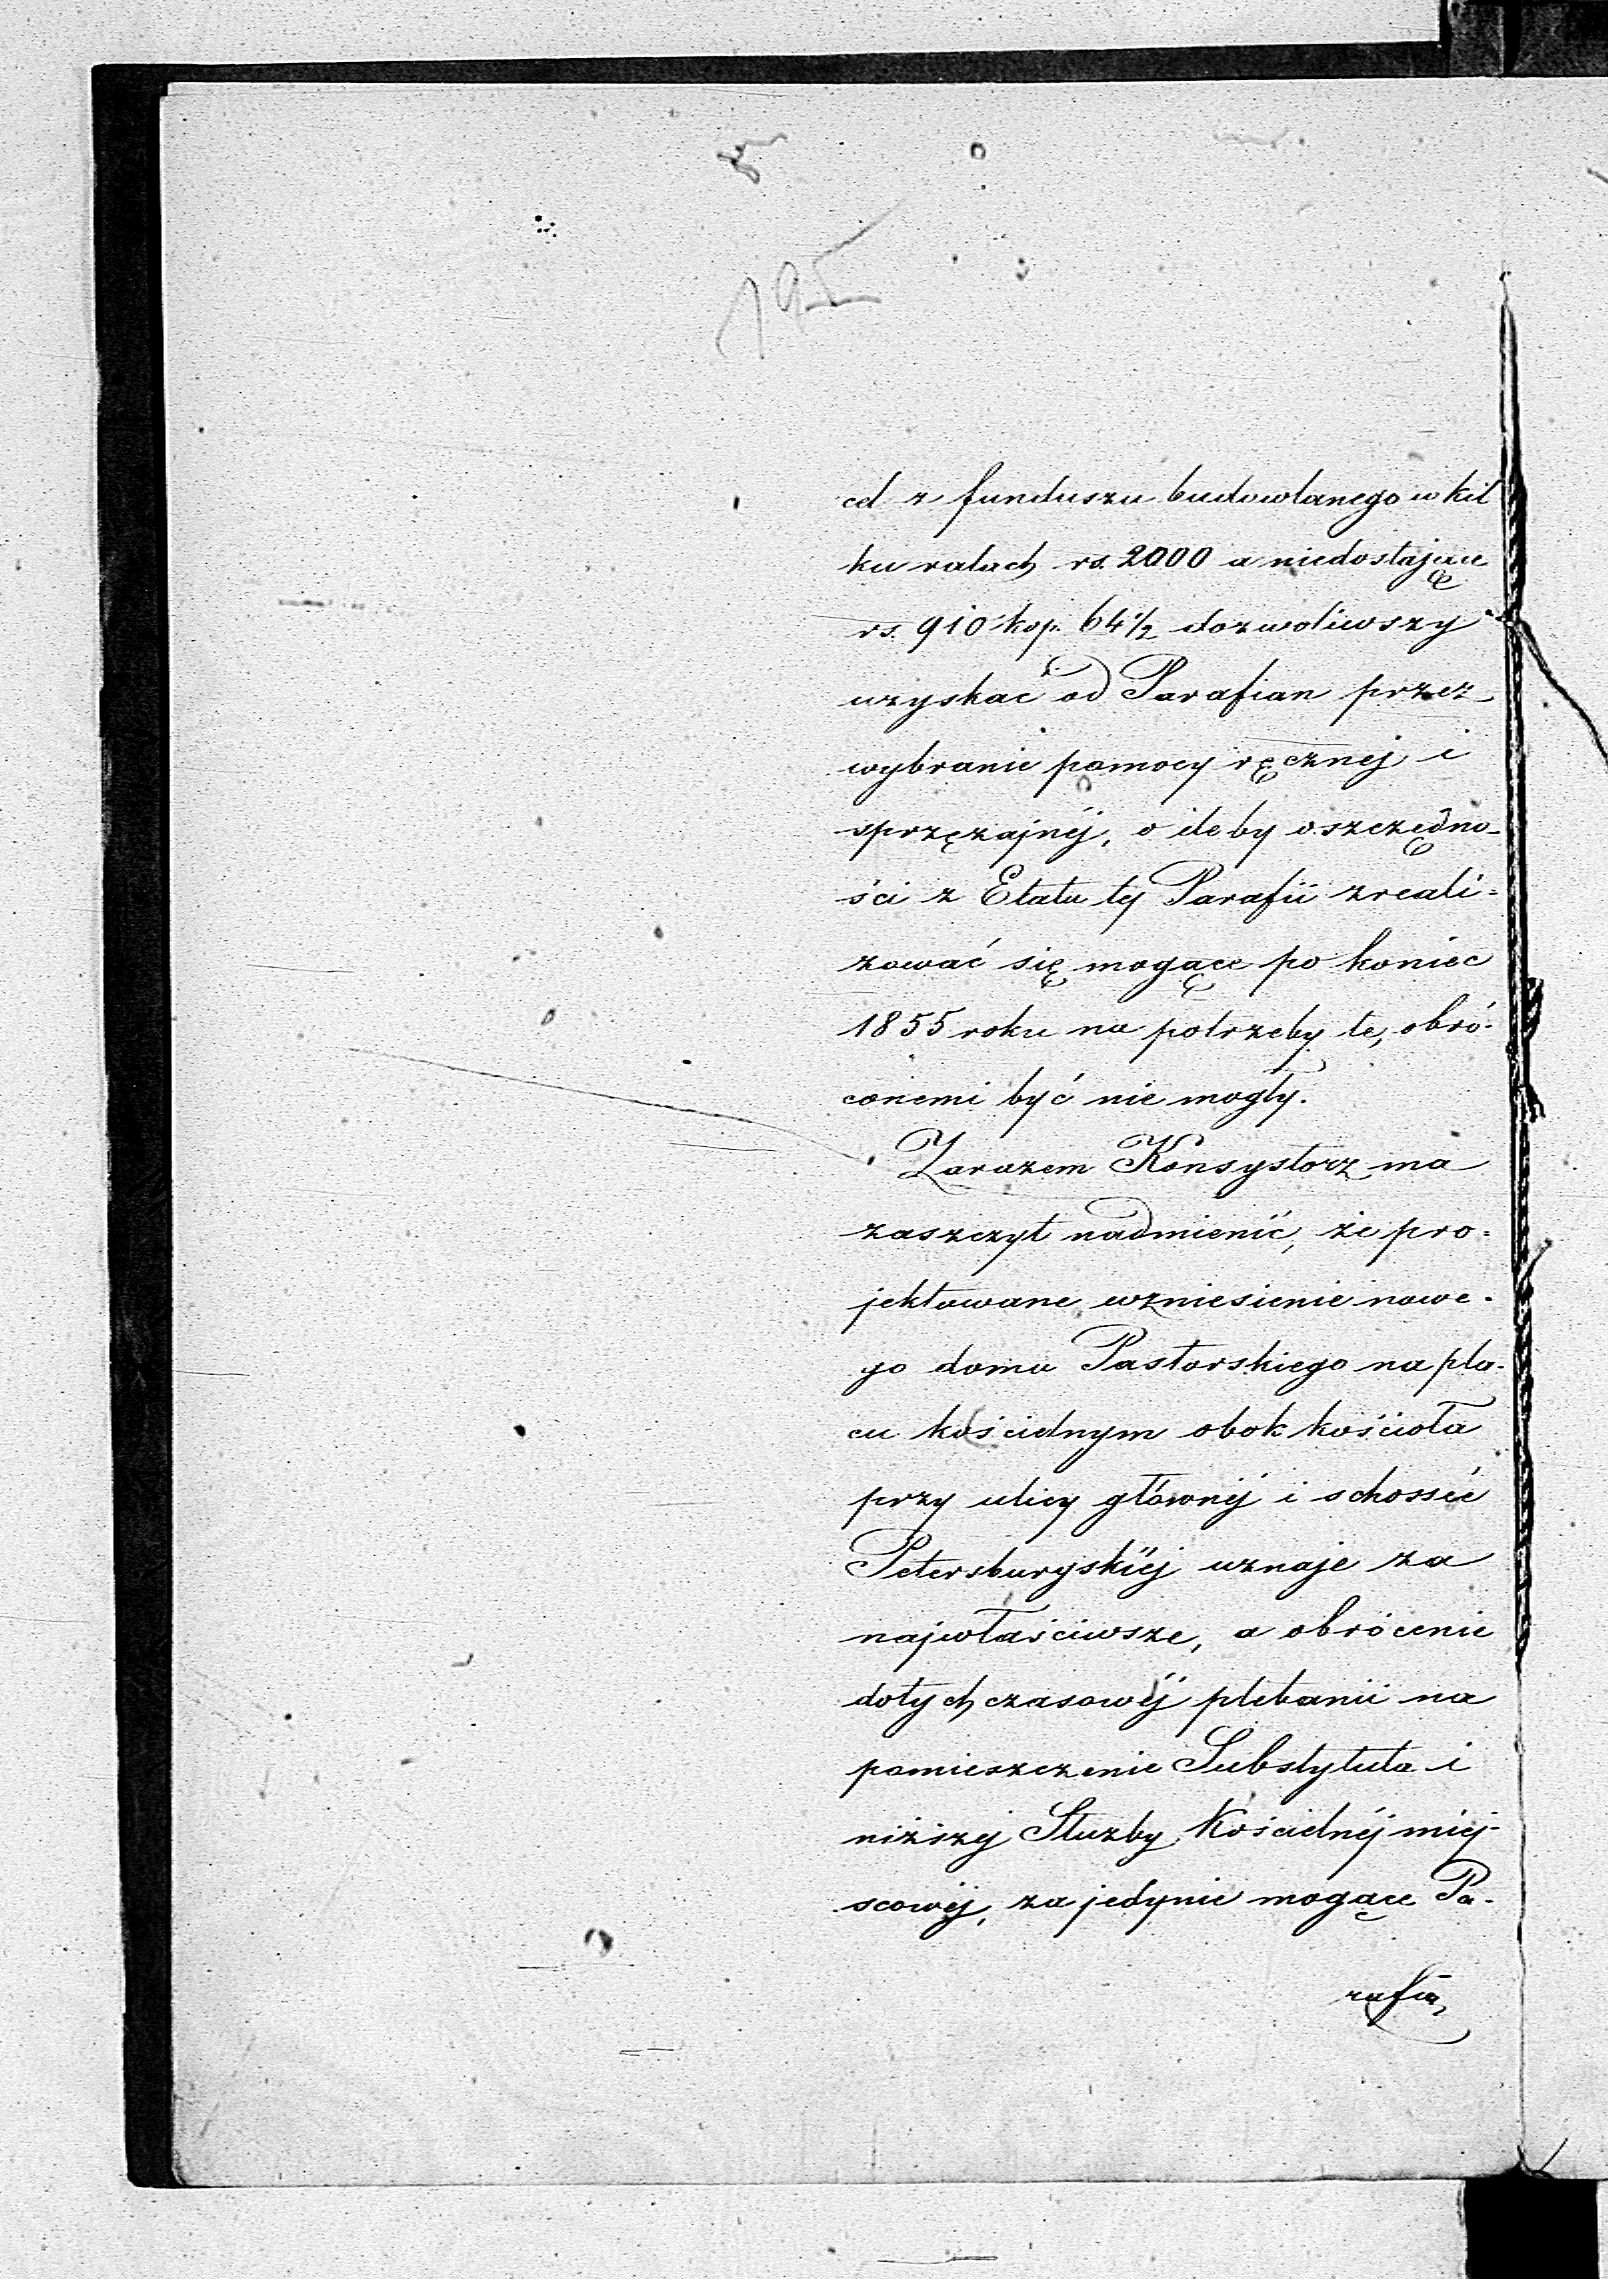 195
cel z funduszu budowlanego w kil
ku ratach rs. 2000 a niedostające
rs. 910 kop. 64½ dozwoliwszy
uzyskać od Parafian przez
wybranie pomocy ręcznej i
sprzężajnéj, o ileby oszczędno-
ści z Etatu téj Parafii zreali=
zować się mogące po koniec
1855 roku na potrzeby te, obró-
conemi być nie mogły.
Zarazem Konsystorz ma
zaszczyt nadmienić, że pro=
jektowane wzniesienie nowe-
go domu Pastorskiego na pla-
cu kościelnym obok kościoła
przy ulicy głównéj i schossée
Petersburgskiéj uznaje za
najwłaściwsze, a obrócenie
dotychczasowéj plebanii na
pomieszczenie Substytuta i
niższéj Służby Kościelnéj miej-
scowéj, za jedynie mogące Pa-
rafią